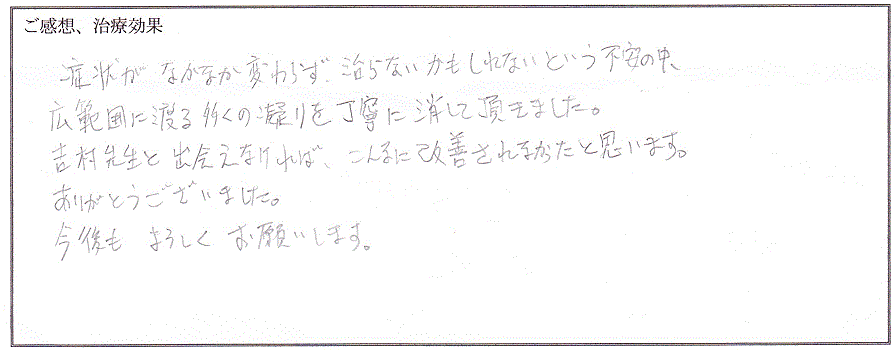 ご感想、治療効果
症状が なかなか変わらず、治らないかもしれないという不安の中、
広範囲に渡る多くの凝りを丁寧に消して頂きました。
吉村先生と出会えなければ、こんなに改善されなかったと思います。
ありがとうございました。
今後も よろしく お願いします。